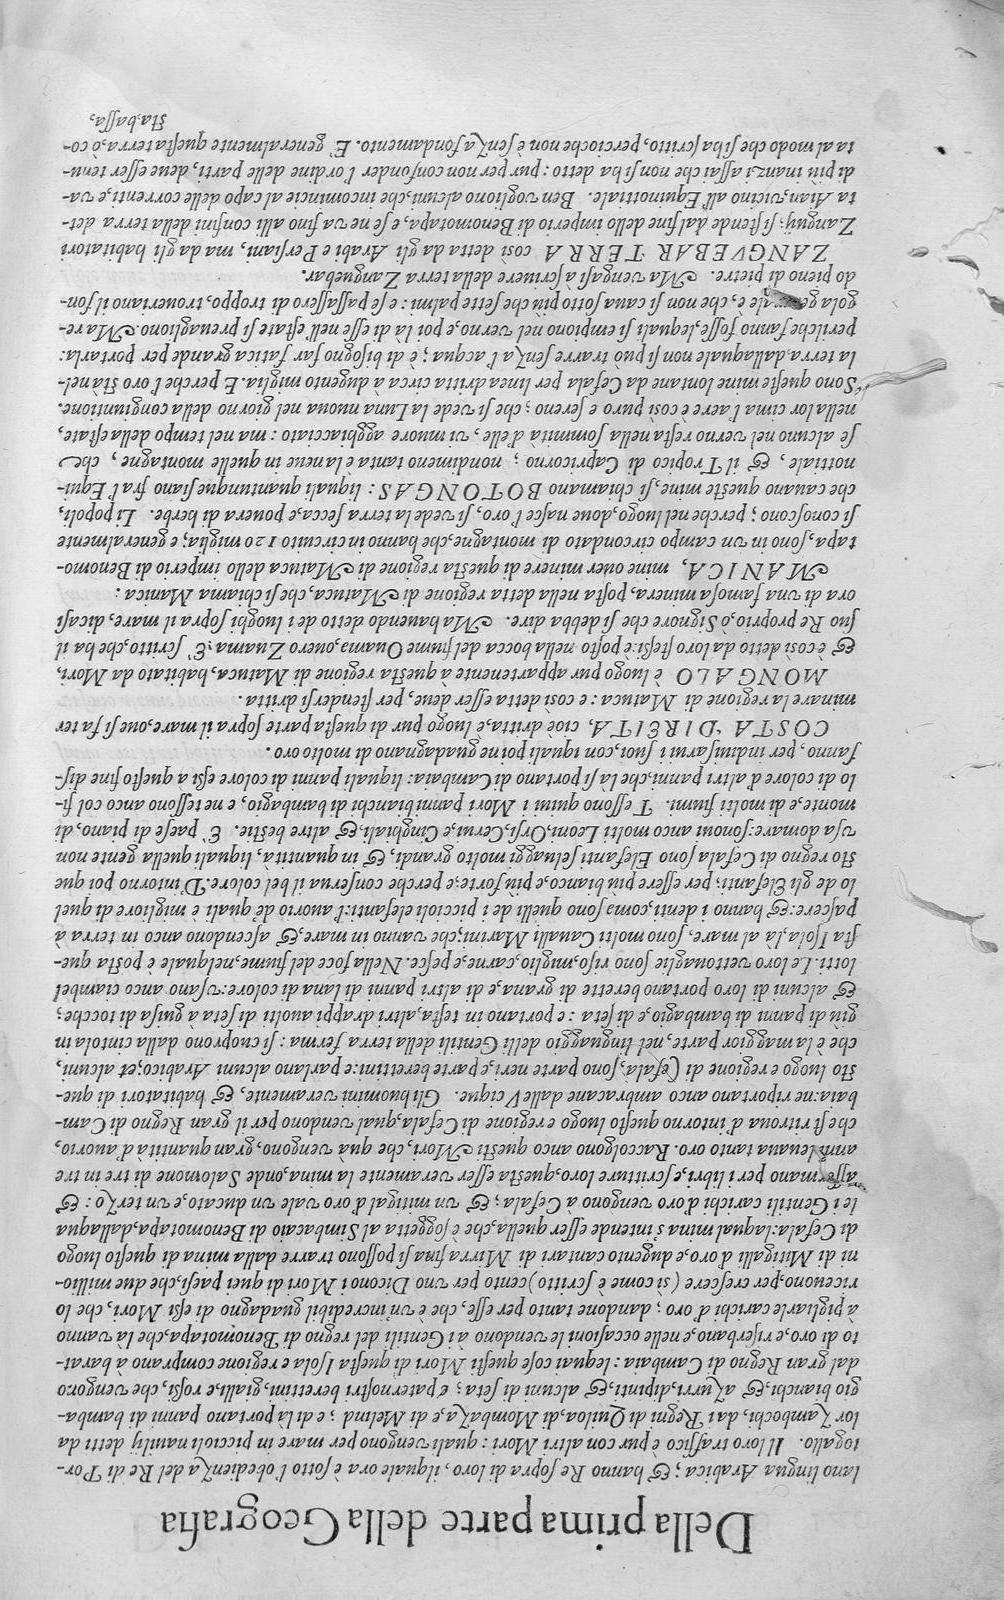 Della prima parte della Geografia
lano lingua Arabica; & hanno Re sopra di loro, ilquale ora è sotto l'obedienza del Re di Por-
togallo. Il loro traffico è pur con altri Mori: quali vengono per mare in piccioli nauilij detti da
lor zambochi, dai Regni di Quiloa, di Mombaza, e di Melind; e di là portano panni di bamba-
gio bianchi, & azurri, dipinti, & alcuni di seta; e paternostri berettini, gialli, e rossi, che vengono
dal gran Regno di Cambaia: lequai cose questi Mori di questa Isola e regione comprano à barat-
to di oro, e riserbano, e nelle occasioni le vendono ai Gentili del regno di Benomotapa, che là vanno
à pigliarle carichi d'oro; dandone tanto per esse, che è un incredibil guadagno di essi Mori, che lo
riceuono, per crescere (sì come è scritto) cento per uno Dicono i Mori di quei paesi, che due millio-
ni di Mitigalli d'oro, e dugento cantari di Mirra fina si possono trarre dalla mina di questo luogo
di Cefala: laqual mina s'intende esser quella, che è soggetta al Simbacaio di Benomotapa, dallaqua
le i Gentili carichi d'oro vengono à Cefala; & un mitigal d'oro vale un ducato, e un terzo: &
affermano per i libri, e scritture loro, questa esser veramente la mina, onde Salomone di tre in tre
anni leuaua tanto oro. Raccolgono anco questi Mori, che quà vengono, gran quantità d'auorio,
che si ritroua d'intorno questo luogo e regione di Cefala, qual vendono per il gran Regno di Cam-
baia: ne riportano anco ambracane dalle Vcique. Gli huomini veramente, & habitatori di que-
sto luogo e regione di Cefala, sono parte neri, e parte berettini: e parlano alcuni Arabico; et alcuni,
che è la maggior parte, nel linguaggio delli Gentili della terra ferma: si cuoprono dalla cintola in
giù di panni di bambagio, e di seta: e portano in testa, altri drappi auolti di seta à guisa di tocche;
& alcuni di loro portano berette di grana, e di altri panni di lana di colore: vsano anco ciambel
lotti. Le loro vettouaglie sono riso, miglio, carne, e pesce. Nella foce del fiume, nelquale è posta que-
sta Isola, là al mare, sono molti Caualli Marini; che vanno in mare, & ascendono anco in terra à
pascere: & hanno i denti, come sono quelli de i piccioli elefanti: l'auorio de quali è migliore di quel
lo de gli Elefanti; per essere più bianco, e più forte, e perche conserua il bel colore. D'intorno poi que
sto regno di Cefala sono Elefanti seluaggi molto grandi, & in quantità, liquali quella gente non
vsa domare: sononi anco molti Leoni, Orsi, Cerui, e Cinghiali, & altre bestie. È paese di piano, di
monte, e di molti fiumi. Tessono quiui i Mori panni bianchi di bambagio, e ne tessono anco col fi-
lo di colore d'altri panni; che là si portano di Cambaia: liquali panni di colore essi a questo fine dis-
fanno, per indiusarni i suoi, con iquali poi ne guadagnano di molto oro.
COSTA DIREITA, cioè dritta, è luogo pur di questa parte sopra il mare, oue si fa ter
minare la regione di Matuca: e così detta esser deue, per stendersi dritta.
MONGALO è luogo pur appartenente à questa regione di Matuca, habitato da Mori,
& è così detto da loro stessi: è posto nella bocca del fiume Ouama, ouero Zuama: E' scritto, che ha il
suo Re proprio, ò Signore che si debba dire. Ma hauendo detto de i luoghi sopra il mare, dicasi
ora di una famosa minera, posta nella detta regione di Matuca, che si chiama Manica:
MANICA, mine ouer minere di questa regione di Matuca dello imperio di Benomo-
tapa, sono in un campo circondato di montagne, che hanno in circuito 120 miglia; e generalmente
si conoscono; perche nel luogo, doue nasce l'oro, si vede la terra secca, e pouera di herbe. Li popoli,
che cauano queste mine, si chiamano BOTONGAS: liquali quantunque siano fra l'Equi-
nottiale, & il Tropico di Capricorno; nondimeno tanta è la neue in quelle montagne, che
se alcuno nel verno resta nella sommità d'elle, vi muore agghiacciato: ma nel tempo della estate,
nella lor cima l'aere è così puro e sereno; che si vede la Luna nuoua nel giorno della congiuntione.
Sono queste mine lontane da Cefala per linea dritta circa à dugento miglia. E perche l'oro sta nel-
la terra, dallaquale non si può trarre senza l'acqua; è di bisogno far fatica grande per portarla:
per il che fanno fosse, lequali si empiono nel verno, e poi là di esse nell'estate si preuagliono. Ma re-
gola generale è, che non si caua sotto più che sette palmi: e se passassero di troppo, troueriano il fon-
do pieno di pietre. Ma vengasi à scriuere della terra Zanguebar.
ZANGVEBAR TERRA così detta da gli Arabi e Persiani, ma da gli habitatori
Zanguij; si stende dal fine dello imperio di Benomotapa, e se ne va fino alli confini della terra det-
ta Aian, vicino all'Equinottiale. Ben vogliono alcuni, che incomincie al capo delle correnti, e va-
di più inanzi assai che non si ha detto: pur per non confonder l'ordine delle parti, deue esser tenu-
ta al modo che si ha scritto, percioche non è senza fondamento. È generalmente questa terra, ò co-
sta, bassa,